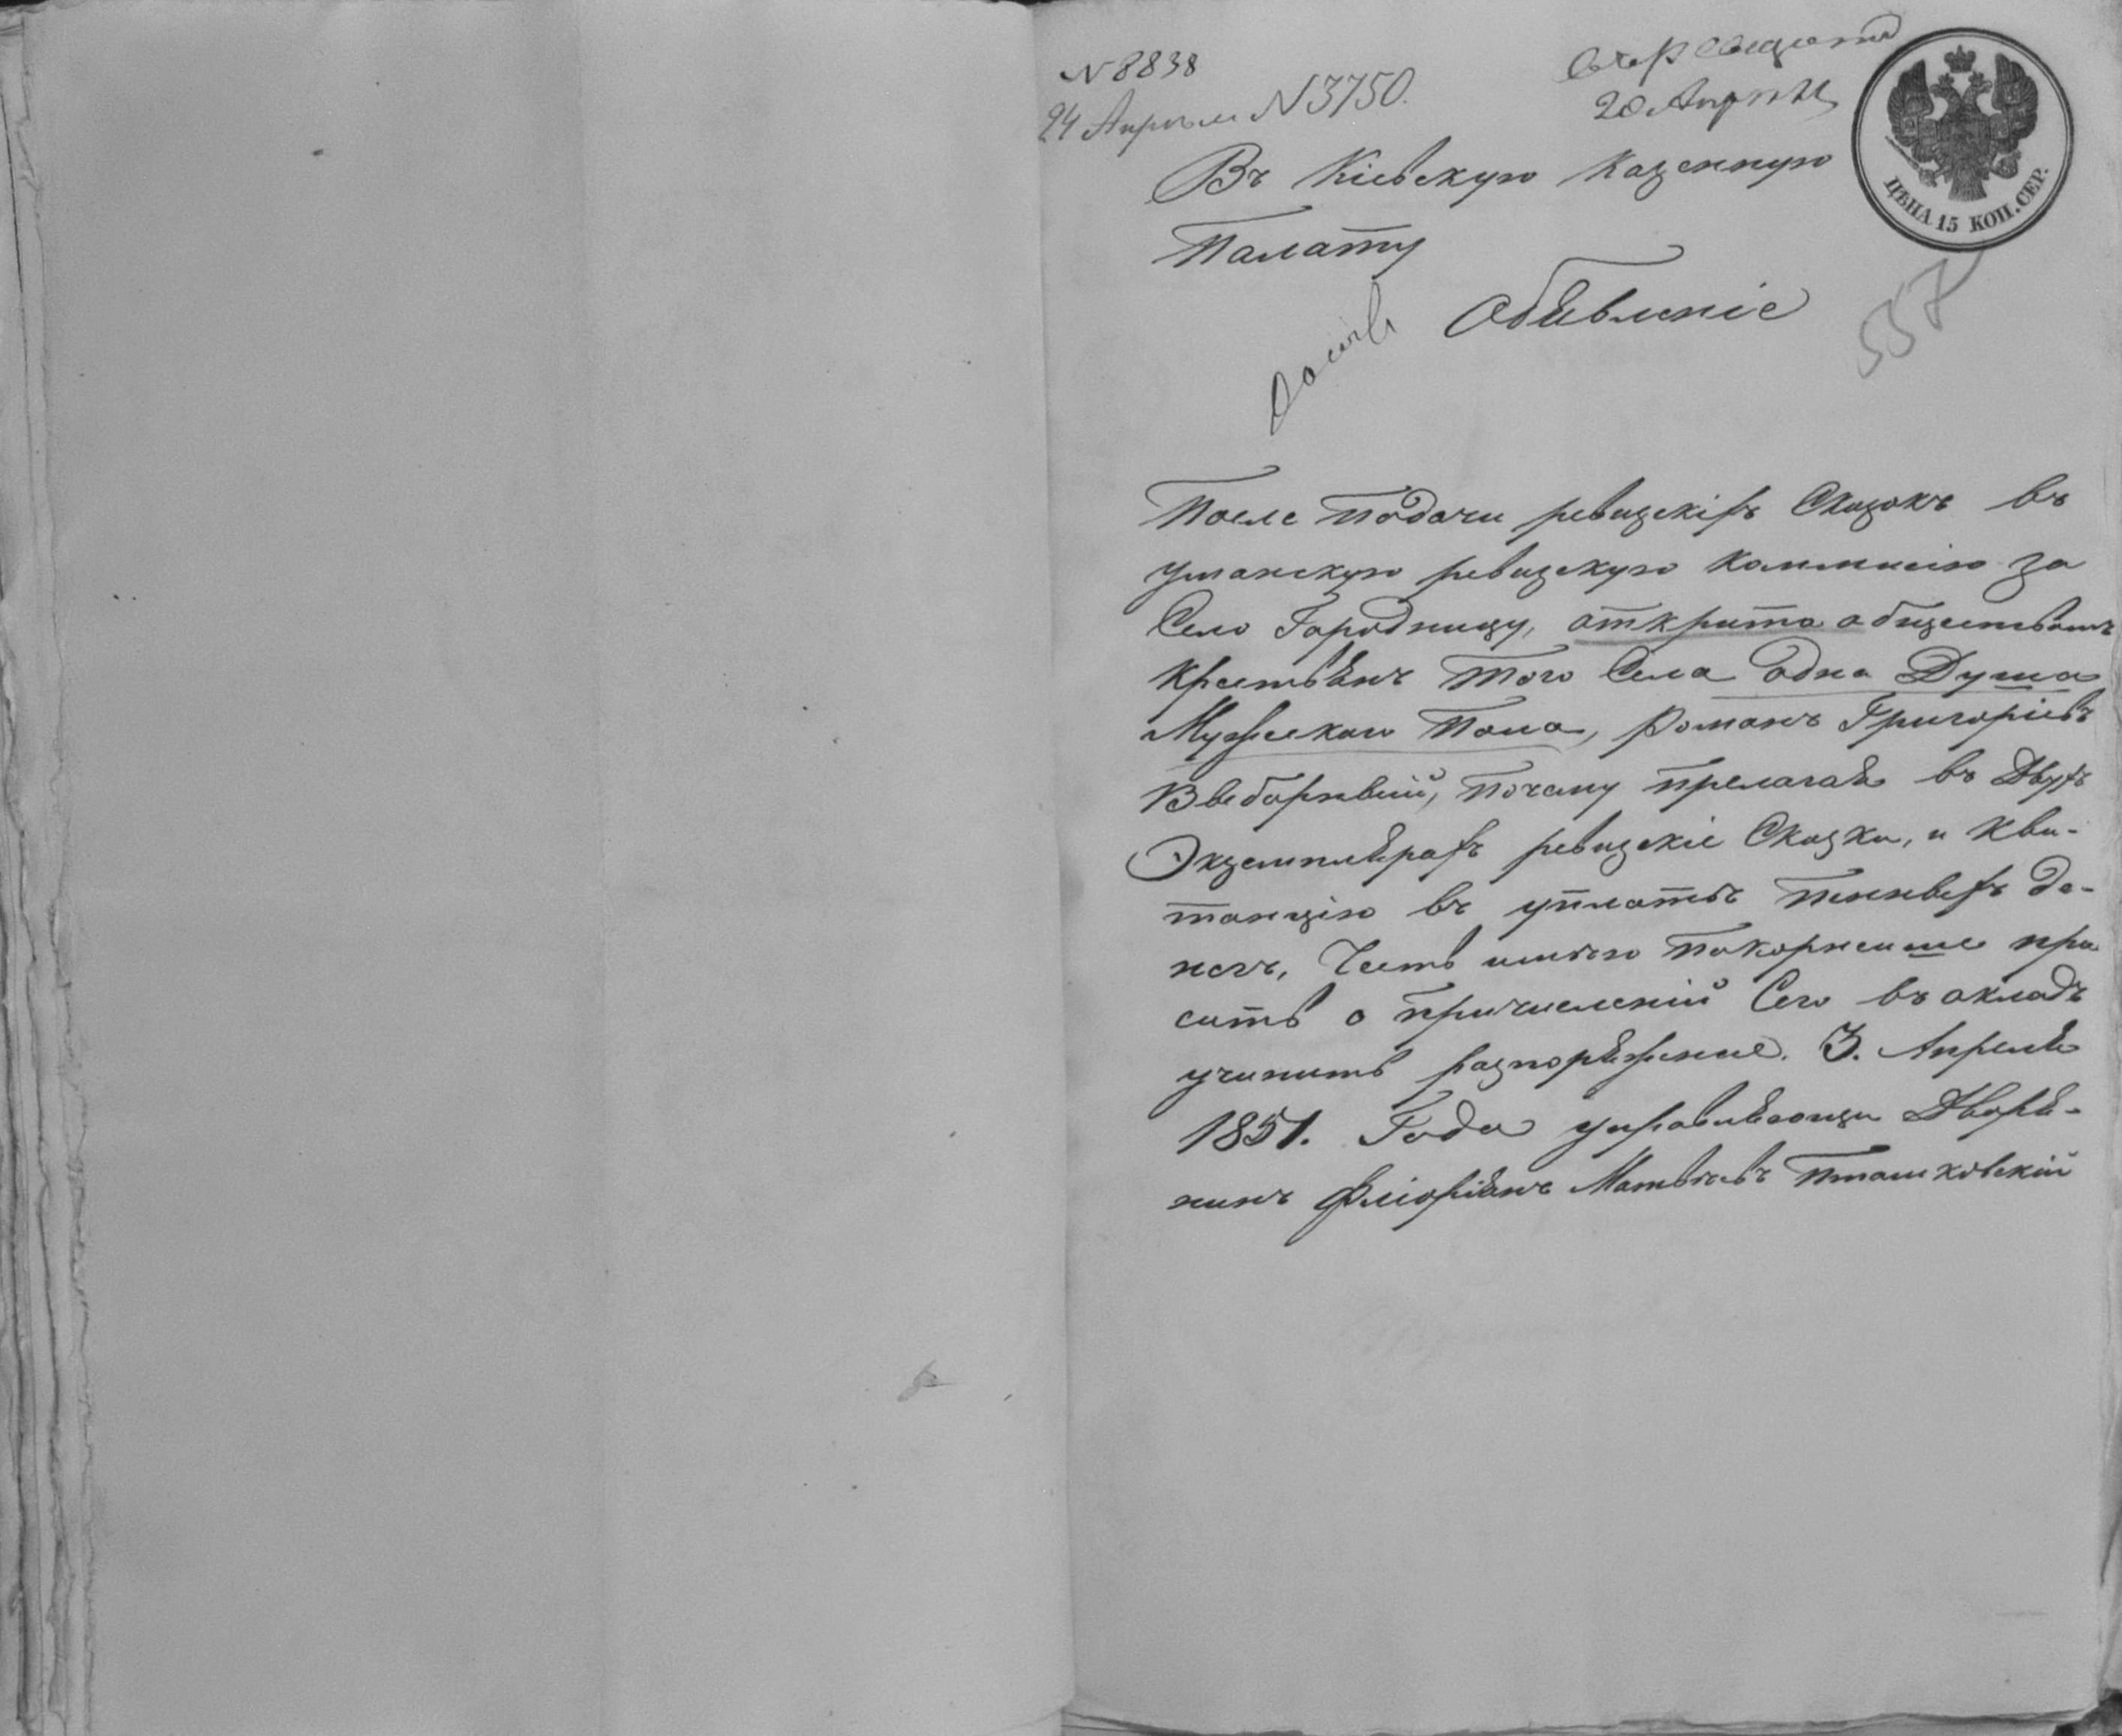 N 8838
24 Апрѣля N 3750.
20 Апрѣля
ЦѢНА 15 КОП. СЕР.
Въ Кіевскую Казенную
Палату
Объявленіе
557
После подачи ревизскіхъ Сказокъ въ
уманскую ревизскую Коммисію за
Село Городницу, открыта обществомъ
Крестьянъ того Села одна Душа
Мужескаго Пола, Романъ Григоріевъ
почему прелагая въ Двухъ
Экземплярахъ ревизскіе Сказки, и Кви-
танцію въ уплатѣ пенныхъ де-
негъ, Честь имѣю покорнеише про
сить о причисленіи Сего въ окладъ
учинить разпоряженіе. 3. Апреля
1851. Года управляющи Дворя-
нинъ Фліоріанъ Матвѣевъ Пташковскій